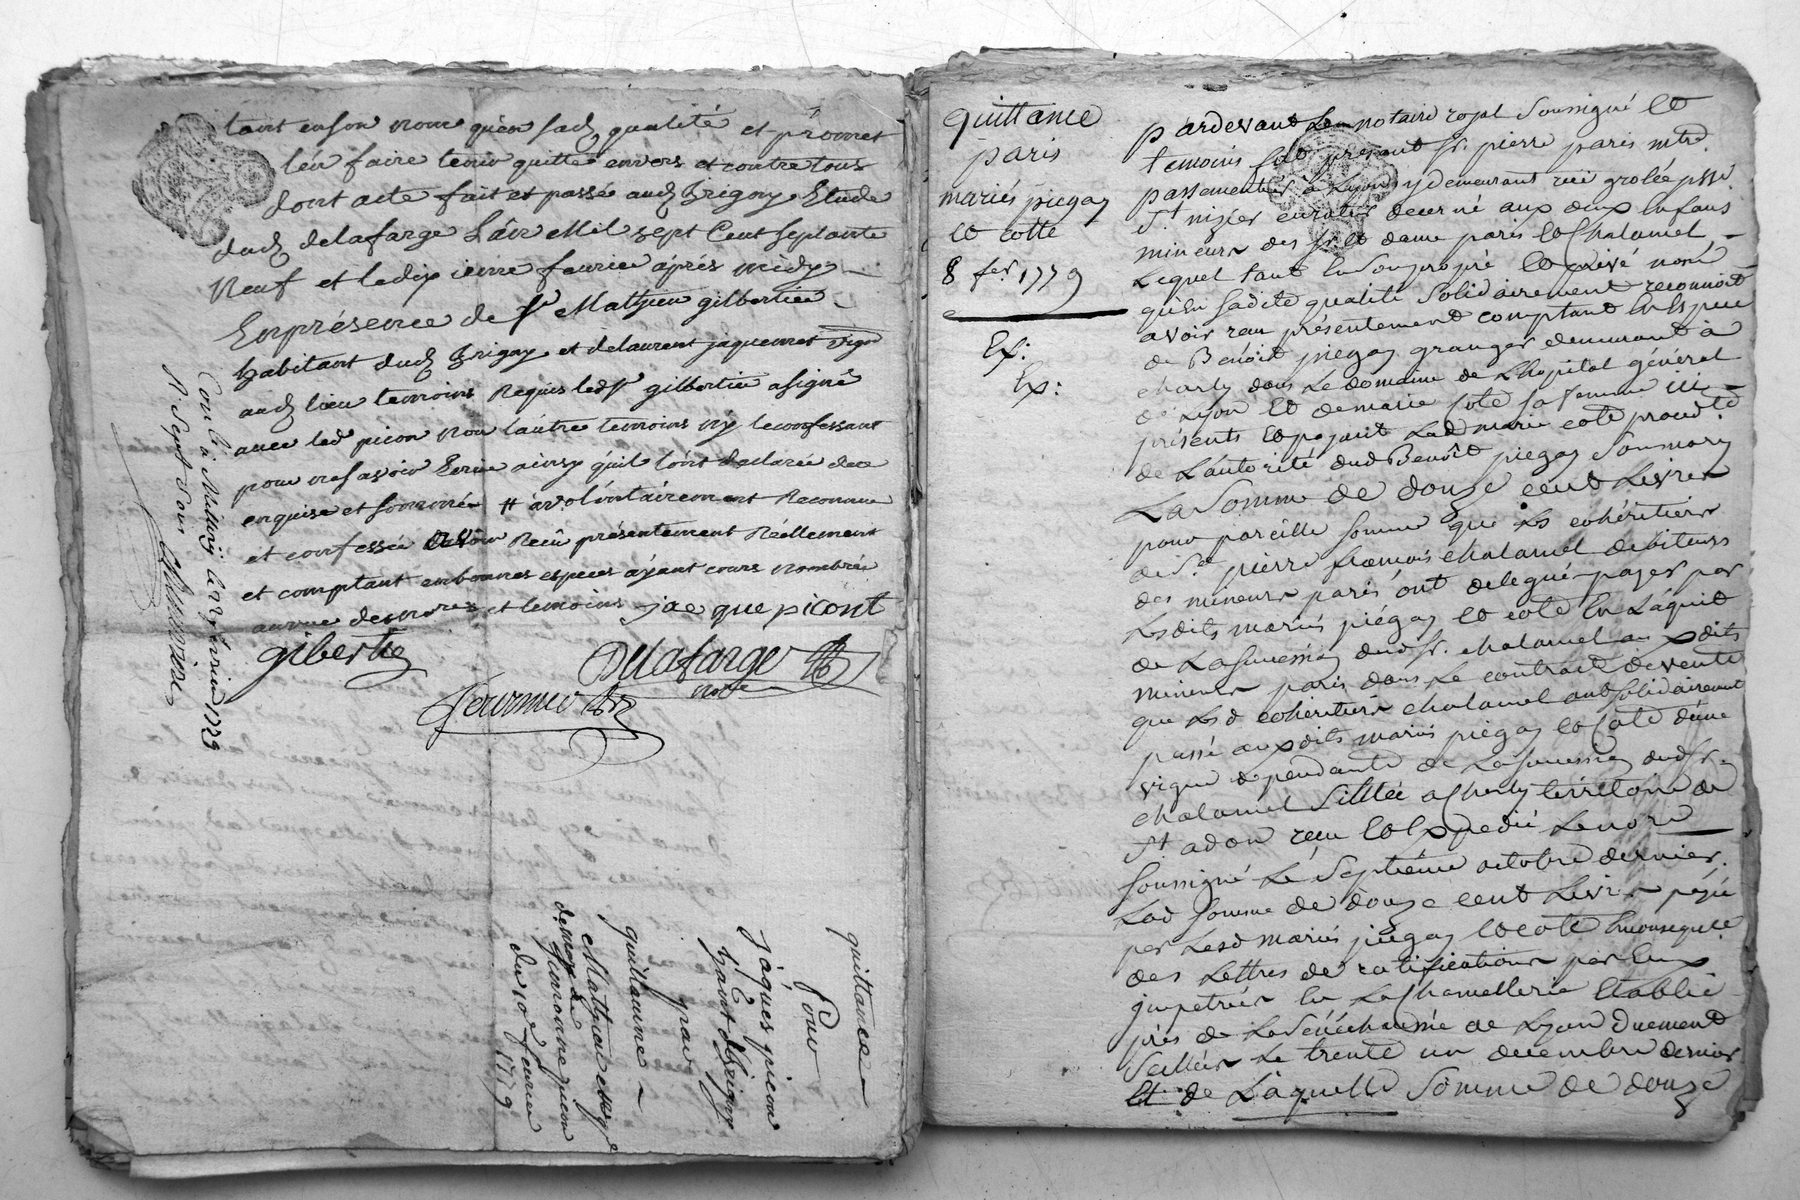 tant en son nom qu'en sad qualité et promet
l'en faire tenir quitte envers et contre tous
dont acte fait et passé aud Irigny Etude
dud delafarge L'an Mil sept Cent septante
Neuf et le dix ieme feurier après midy
En présence de sr Mathieu gilbertier
habitant dud Irigny et de laurent jaquemet
aud lieu temoins Requis led sr gilbertier a signé
avec led picon non l'autre temoins ny le confessant
pour ne savoir Ecrire ainsy qu'il l'ont declarée de ce
enquise et sommée # a volontairement Reconnue
et confessée avoir Reçû présentement Réellement
et comptant en bonnes especes ayant cours nombrée
au vue des et temoins jae que picont
giberti
Delafarge
nore
fournier
Con lé à Millery le février 1779
R. Sept sous
quittance
Pour
jaques picon
d'Irigny
par
guillaume
Mathieu
picon
du 10e feurier
1779
quittance
paris
mariés piegay
et cotte
8 fer 1779
Ex:
Ex:
Pardevant Le notaire royal Soussigné et
temoins fut present sr. pierre paris mtre.
passementier à Lyon y demeurant rüe grolée psse.
St nizier curateur decerné aux deux Enfans
mineurs des sr et dame paris et Chalamel
Lequel tant En Son propre et privé nom
qu'En Sadite qualité Solidairement reconnoit
avoir reçu présentement comptant En Espece
de Benoît piegay granger demeurant à
charly dans Le domaine de L'hopital général
de Lyon et de marie Cote sa femme ici
présents et payant Lad marie cote procedte
de L'autorité dud Benoît piegay Son mary
La Somme de douze cent Livres
pour pareille somme que Les cohéritiers
de Sr pierre françois chalamel debiteurs
des mineurs paris ont delegué payer par
Lesdits mariés piégay et cote En L'aquit
de La succession dud sr. chalamel auxdits
mineurs paris dans Le contract de vente
que Lesd cohéritiers chalamel ont Solidairement
passé auxdits mariés piegay et Cote d'une
vigne dependante de La succession dud sr.
chalamel Sittée a Charly territoire de
St adon reçu et Expedié Le nore
soussigné Le Septième octobre dernier.
Lad somme de douze cent Livres
par Lesd mariés piégay et cote En consequence
des Lettres de ratification par Eux
impetrées En La Chancellerie Etablie
près de La Sénéchaussée de Lyon duement
Scellées Le trente un decembre dernier
Et de Laquelle Somme de douze